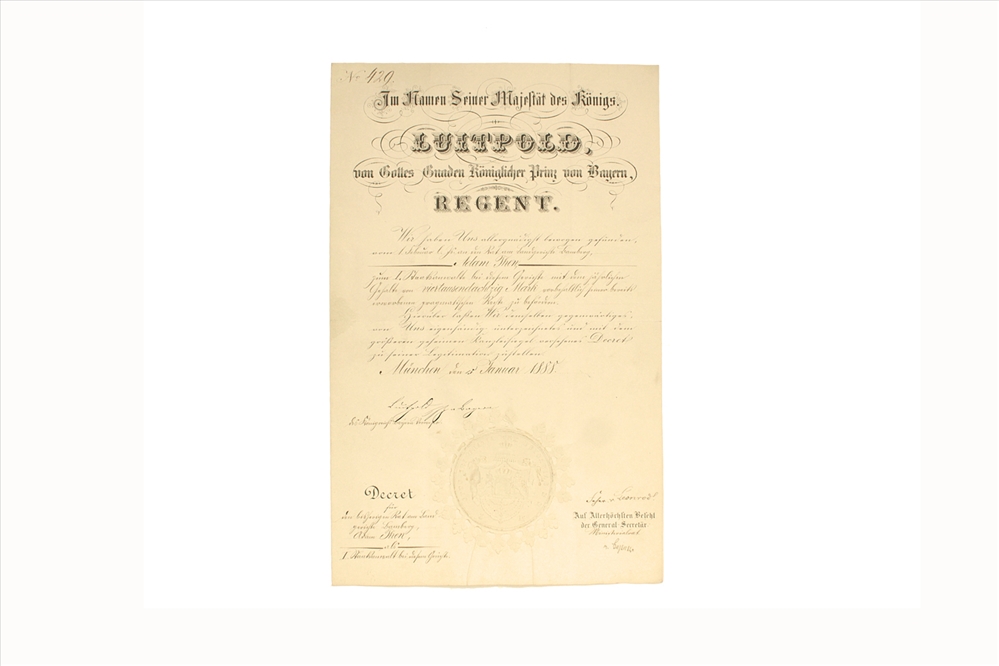 No 429.
Im Namen Seiner Majestät des Königs.
LUITPOLD,
von Gottes Gnaden Königlicher Prinz von Bayern,
REGENT.
Wir haben Uns allergnädigst bewogen gefunden,
vom 1. Februar l. Js. an den Rat am Landgerichte Bamberg,
Adam Then
zum I. Staatsanwalte bei diesem Gerichte mit dem jährlichen
Gehalte von viertausendachtzig Mark, vorbehaltlich seiner bereits
erworbenen pragmatischen Rechte zu befördern.
Hierüber lassen Wir demselben gegenwärtiges,
von Uns eigenhändig unterzeichnetes und mit dem
größeren geheimen Kanzleisiegel versehenes Decret
zu seiner Legitimation zustellen.
München den 15 Januar 1888.
Luitpold Bayern
des Königreichs Bayern
Decret
für
den bisherigen Rat am Land-
gerichte Bamberg,
Adam Then,
als
I. Staatsanwalt bei diesem Gerichte.
Auf Allerhöchsten Befehl
der General-Secretär